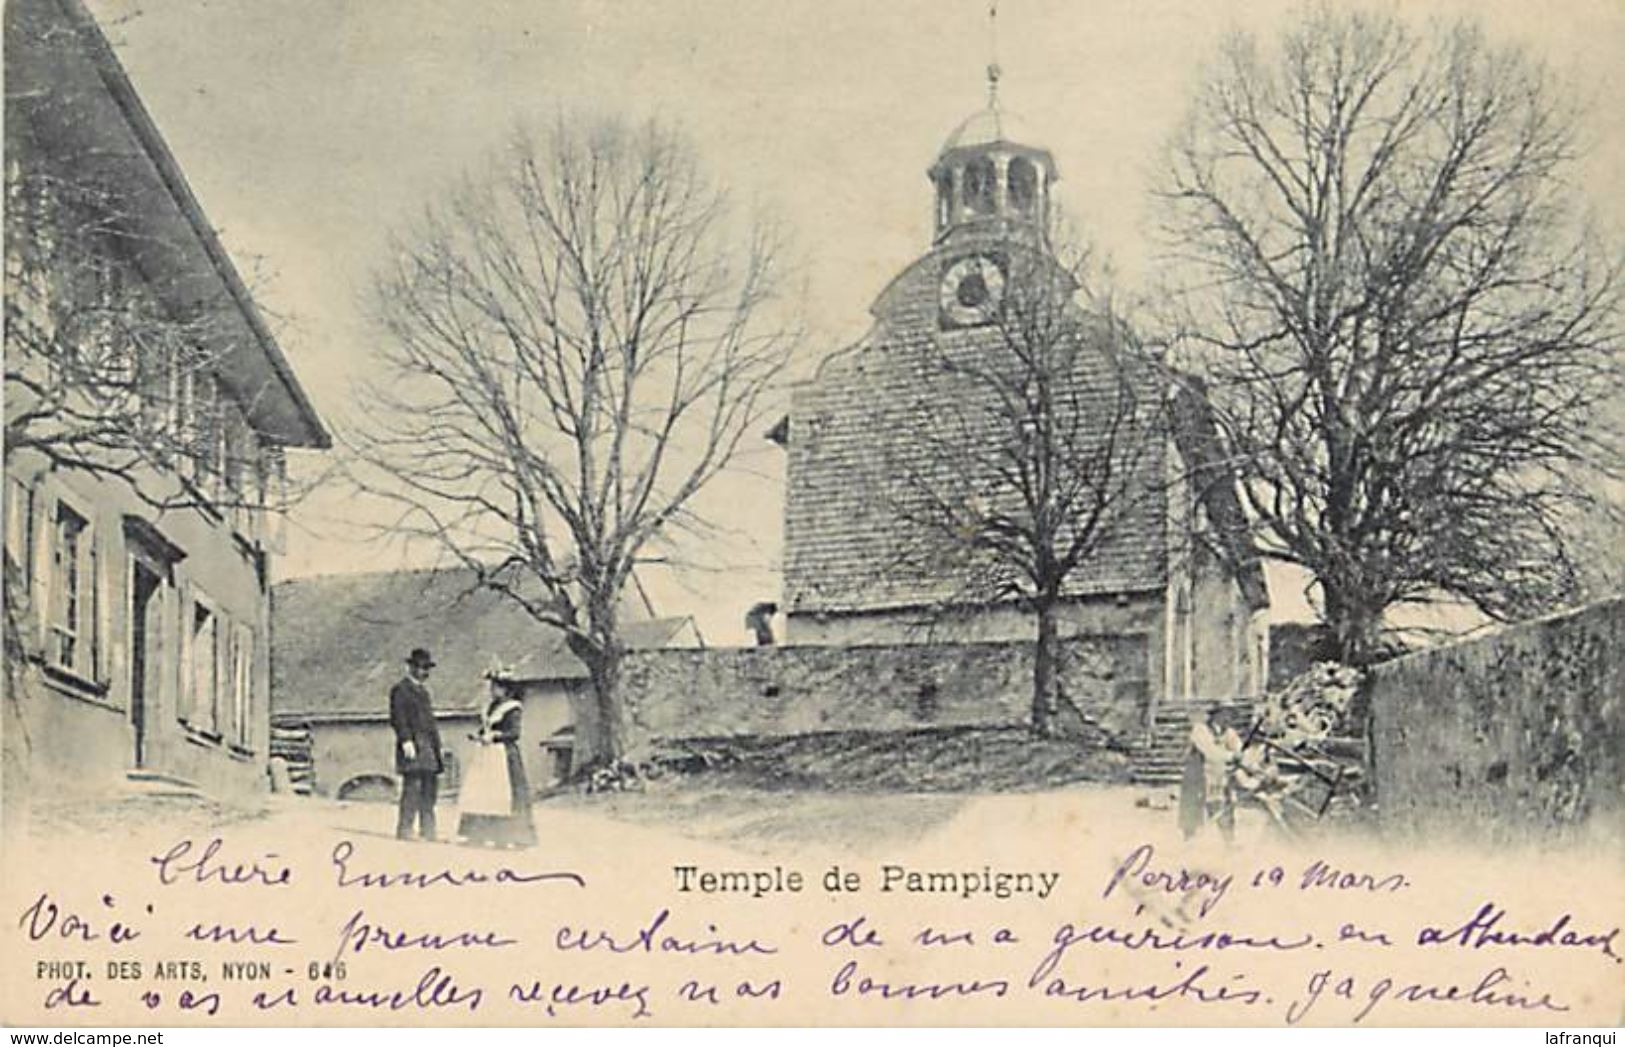 Temple de Pampigny
Perroy 19 Mars.
Chère Emma
Voici une preuve certaine de ma guérison. en attendant
PHOT. DES ARTS, NYON - 646
de vos nouvelles recevez nos bonnes amitiés. Jaqueline
delcampe.net
lafranqui